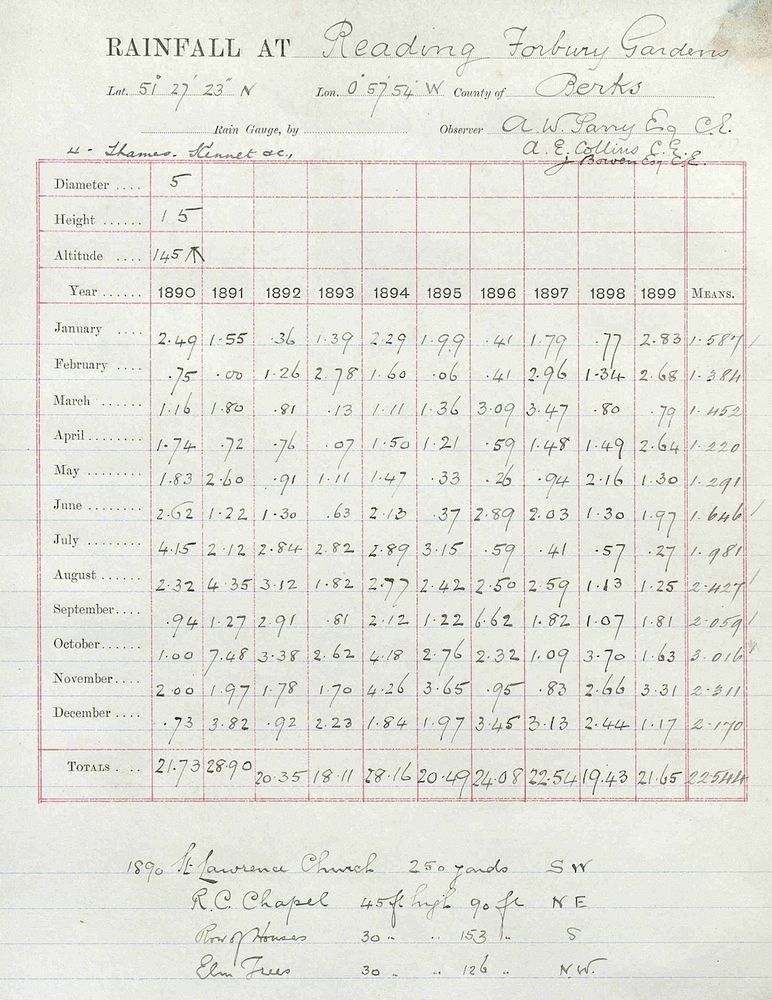 RAINFALL AT Reading Forbury Gardens
Lat. 51° 27' 23" N Lon. 0° 57' 54" W County of Berks
Rain Gauge, by Observer A. W. Parry Esq C.E.
4- Thames. Kennet &c., A. E. Collins C.E.
J Bowen Esq C.E.
Diameter .... 5
Height ...... 15
Altitude .... 145
Year ...... 1890 1891 1892 1893 1894 1895 1896 1897 1898 1899 MEANS.
January .... 2.49 1.55 .36 1.39 2.29 1.99 .41 1.79 .77 2.83 1.587
February .... .75 .00 1.26 2.78 1.60 .06 .41 2.96 1.34 2.68 1.384
March ...... 1.16 1.80 .81 .13 1.11 1.36 3.09 3.47 .80 .79 1.452
April ........ 1.74 .72 .76 .07 1.50 1.21 .59 1.48 1.49 2.64 1.220
May ........ 1.83 2.60 .91 1.11 1.47 .33 .26 .94 2.16 1.30 1.291
June ........ 2.62 1.22 1.30 .63 2.13 .37 2.89 2.03 1.30 1.97 1.646
July ........ 4.15 2.12 2.84 2.82 2.89 3.15 .59 .41 .57 .27 1.981
August ...... 2.32 4.35 3.12 1.82 2.77 2.42 2.50 2.59 1.13 1.25 2.427
September .... .94 1.27 2.91 .81 2.12 1.22 6.62 1.82 1.07 1.81 2.059
October ...... 1.00 7.48 3.38 2.62 4.18 2.76 2.32 1.09 3.70 1.63 3.016
November .... 2.00 1.97 1.78 1.70 4.26 3.65 .95 .83 2.66 3.31 2.311
December .... .73 3.82 .92 2.23 1.84 1.97 3.45 3.13 2.44 1.17 2.170
TOTALS .... 21.73 28.90 20.35 18.11 28.16 20.49 24.08 22.54 19.43 21.65 22.544
1890 St Lawrence Church 250 yards SW
R.C. Chapel 45ft high 90 ft NE
Row of Houses 30 " " 153 " S
Elm Trees 30 " " 126 " N.W.